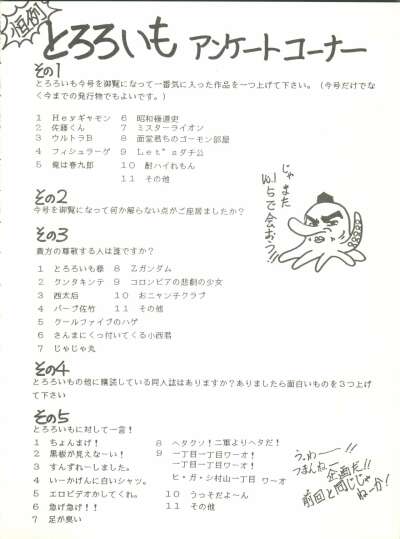 恒例
とろろいも アンケートコーナー
その1
とろろいも今号を御覧になって一番気に入った作品を一つ上げて下さい。(今号だけでな
く今までの発行物でもよいです。)
1 Heyギャモン 6 昭和極道史
2 佐藤くん 7 ミスターライオン
3 ウルトラB 8 面堂君ちのゴーモン部屋
4 フィシュラーゲ 9 Let's ダチ公
5 俺は春九郎 10 耐ハイれもん
11 その他
じゃ
また
Vol.1
5で
会おう!!
その2
今号を御覧になって何か解らない点がご座居ましたか?
その3
貴方の尊敬する人は誰ですか?
1 とろろいも様 8 Zガンダム
2 クンタキンテ 9 コロンビアの悲劇の少女
3 西太后 10 おニャン子クラブ
4 バーブ佐竹 11 その他
5 クールファイブのハゲ
6 さんまにくっ付いてくる小西君
7 じゃじゃ丸
その4
とろろいもの他に購読している同人誌はありますか?ありましたら面白いものを3つ上げ
て下さい
その5
とろろいもに対して一言!
1 ちょんまげ! 8 ヘタクソ!二軍よりヘタだ!
2 黒板が見えな~い! 9 一丁目一丁目ワーオ!
3 すんずれーしました。 一丁目一丁目ワーオ!
4 いーかげんに白いシャツ。 ヒ・ガ・シ村山一丁目 ワーオ
5 エロビデオかしてくれ。 10 うっそだよ~ん
6 急げ急げ!! 11 その他
7 足が臭い
うっわーー!!
つまんねー
企画だ!!
前回と同じじゃ
ねーか!